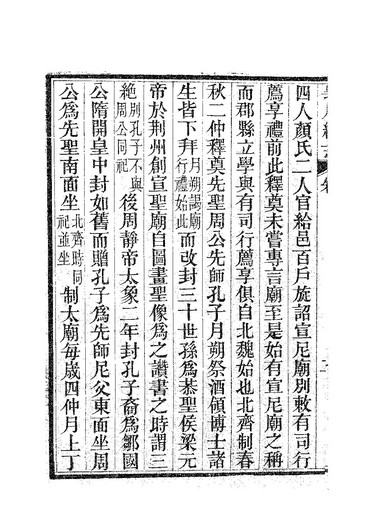 四人顏氏二人官給邑百戶旋詔宣尼廟別敕有司行
薦享禮前此釋奠未嘗專言廟至是始有宣尼廟之稱
而郡縣立學與有司行薦享俱自北魏始也北齊制春
秋二仲釋奠先聖周公先師孔子月朔祭酒領博士諸
生皆下拜月朔謁廟行禮始此而改封三十世孫爲恭聖侯梁元
帝於荆州創宣聖廟自圖畫聖像爲之讚書之時謂三
絕別孔子不與周公同祀後周靜帝太象二年封孔子裔爲鄒國
公隋開皇中封如舊而贈孔子爲先師尼父東面坐周
公爲先聖南面坐北齊時同祀並坐制太廟每歲四仲月上丁